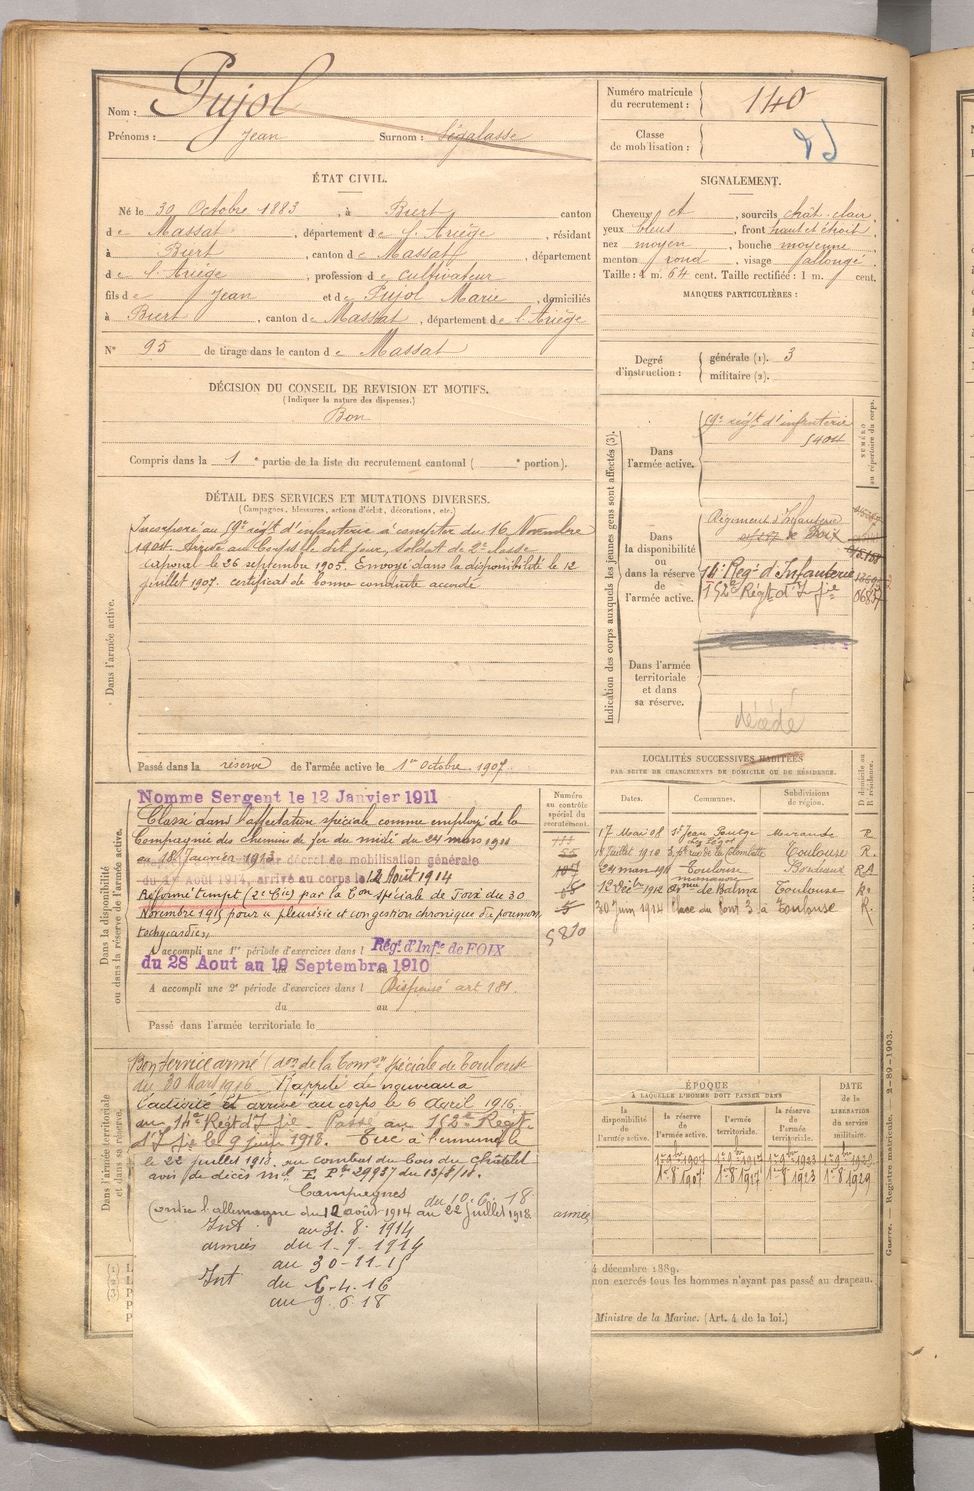 Nom : Pujol
Prénoms : Jean Surnom : Ségalasse
Numéro matricule du recrutement : 140
Classe de mobilisation :
ÉTAT CIVIL.
Né le 30 Octobre 1883, à Biert, canton
de Massat, département de l'Ariège, résidant
à Biert, canton de Massat, département
de l'Ariège, profession de cultivateur
fils de Jean et de Pujol Marie, domiciliés
à Biert, canton de Massat, département de l'Ariège
N° 95 de tirage dans le canton de Massat
SIGNALEMENT.
Cheveux et, sourcils chât. clair,
yeux bleus, front haut et étroit,
nez moyen, bouche moyenne,
menton rond, visage allongé.
Taille : 1 m. 64 cent. Taille rectifiée : 1 m. cent.
MARQUES PARTICULIÈRES :
Degré d'instruction : générale (1). 3
militaire (2).
DÉCISION DU CONSEIL DE REVISION ET MOTIFS.
(Indiquer la nature des dispenses.)
Bon
Compris dans la 1e partie de la liste du recrutement cantonal ( e portion).
DÉTAIL DES SERVICES ET MUTATIONS DIVERSES.
(Campagnes, blessures, actions d'éclat, décorations, etc.)
Dans l'armée active.
Incorporé au 59e régt d'infanterie à compter du 16 Novembre
1904. Arrivé au Corps le dit jour, soldat de 2e classe
caporal le 26 septembre 1905. Envoyé dans la disponibilité le 12
juillet 1907. certificat de bonne conduite accordé.
Passé dans la réserve de l'armée active le 1er Octobre 1907.
Indication des corps auxquels les jeunes gens sont affectés (3).
NUMÉRO au répertoire du corps.
Dans l'armée active.
59e régt d'infanterie
5404
Dans la disponibilité ou dans la réserve de l'armée active.
Régiment d'Infanterie
de Foix
14e Régt d'Infanterie
152e Régt d'Infie
Dans l'armée territoriale et dans sa réserve.
décédé
Dans la disponibilité ou dans la réserve de l'armée active.
Nomme Sergent le 12 Janvier 1911
Classé dans l'affectation spéciale comme employé de la
Compagnie des chemins de fer du midi du 24 mars 1911
au 18 Janvier 1913 par décret de mobilisation générale
du 1er Août 1914, arrivé au corps le 12 Août 1914
Réformé tempt (2e Cie) par la Con spéciale de Foix du 30
Novembre 1915 pour pleurésie et congestion chronique du poumon,
tachycardie,
A accompli une 1re période d'exercices dans l Régt d'Infie de FOIX
du 28 Aout au 19 Septembre 1910
A accompli une 2e période d'exercices dans l Dispensé art 181.
du au
Passé dans l'armée territoriale le
Numéro au contrôle spécial du recrutement.
5810
LOCALITÉS SUCCESSIVES HABITÉES
PAR SUITE DE CHANGEMENTS DE DOMICILE OU DE RÉSIDENCE.
Dates. Communes. Subdivisions de région. D domicile ou R résidence.
17 Mai 08 St Jean Poutge Mirande R.
18 Juillet 1910 3, rue de la Colombette Toulouse R.
24 mars 1911 Toulouse Bordeaux RA
12 Décbre 1912 de Balma Toulouse R.
30 Juin 1914 Place du Pont 3 à Toulouse R.
Dans l'armée territoriale et dans sa réserve.
Bon service armé (don de la Comon spéciale de Toulouse
du 30 Mars 1916. Rappelé de nouveau à
l'activité et arrivé au corps le 6 Avril 1916.
au 14e Régt d'Ifie. Passé au 152e Régt
d'Ifie le 9 juin 1918. Tué à l'ennemi le
le 22 juillet 1918. au combat du bois du Châtelet
avis de décès mel E Pr 29937 du 13/8/18.
Campagnes
Contre l'allemagne du 12 août 1914 au 22 juillet 1918
du 10.6.18
armées
Int au 31.8.1914
armées du 1.9.1914
au 30-11-15
Int du 6.4.16
au 9.6.18
ÉPOQUE
À LAQUELLE L'HOMME DOIT PASSER DANS
la disponibilité de l'armée active. la réserve de l'armée active. l'armée territoriale. la réserve de l'armée territoriale.
DATE de la LIBÉRATION du service militaire.
1er 8bre 1907 1er 9bre 1917 1er 9bre 1923 1er 9bre 1929
1er 8 1907 1er 8 1917 1er 8 1923 1er 8 1929
4 décembre 1889.
non exercés tous les hommes n'ayant pas passé au drapeau.
Ministre de la Marine. (Art. 4 de la loi.)
Guerre. — Registre matricule. 2-89-1903.